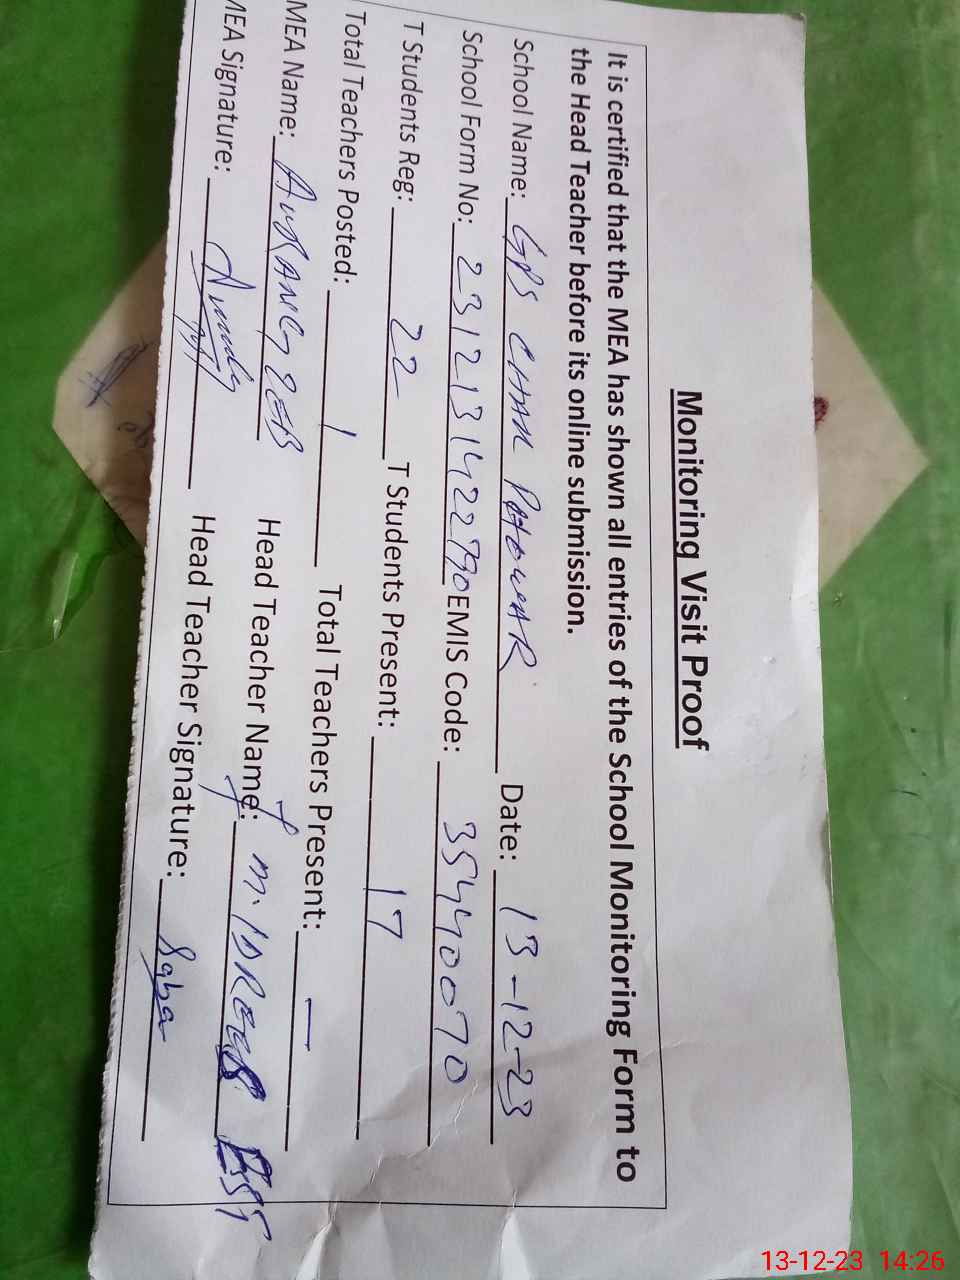 Monitoring Visit Proof
It is certified that the MEA has shown all entries of the School Monitoring Form to
the Head Teacher before its online submission.
School Name: GPS CHAK POTOWAR Date: 13-12-23
School Form No: 2312131422790 EMIS Code: 35440070
T Students Reg: 22 T Students Present: 17
Total Teachers Posted: 1 Total Teachers Present: —
MEA Name: AURANGZEB Head Teacher Name: M. IDREES EST
MEA Signature: Head Teacher Signature: Saba
13-12-23 14:26